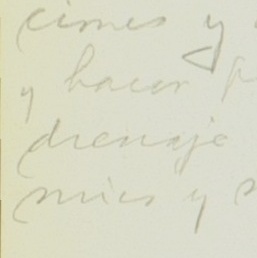 cimes y
y hacer
drenaje
mies y